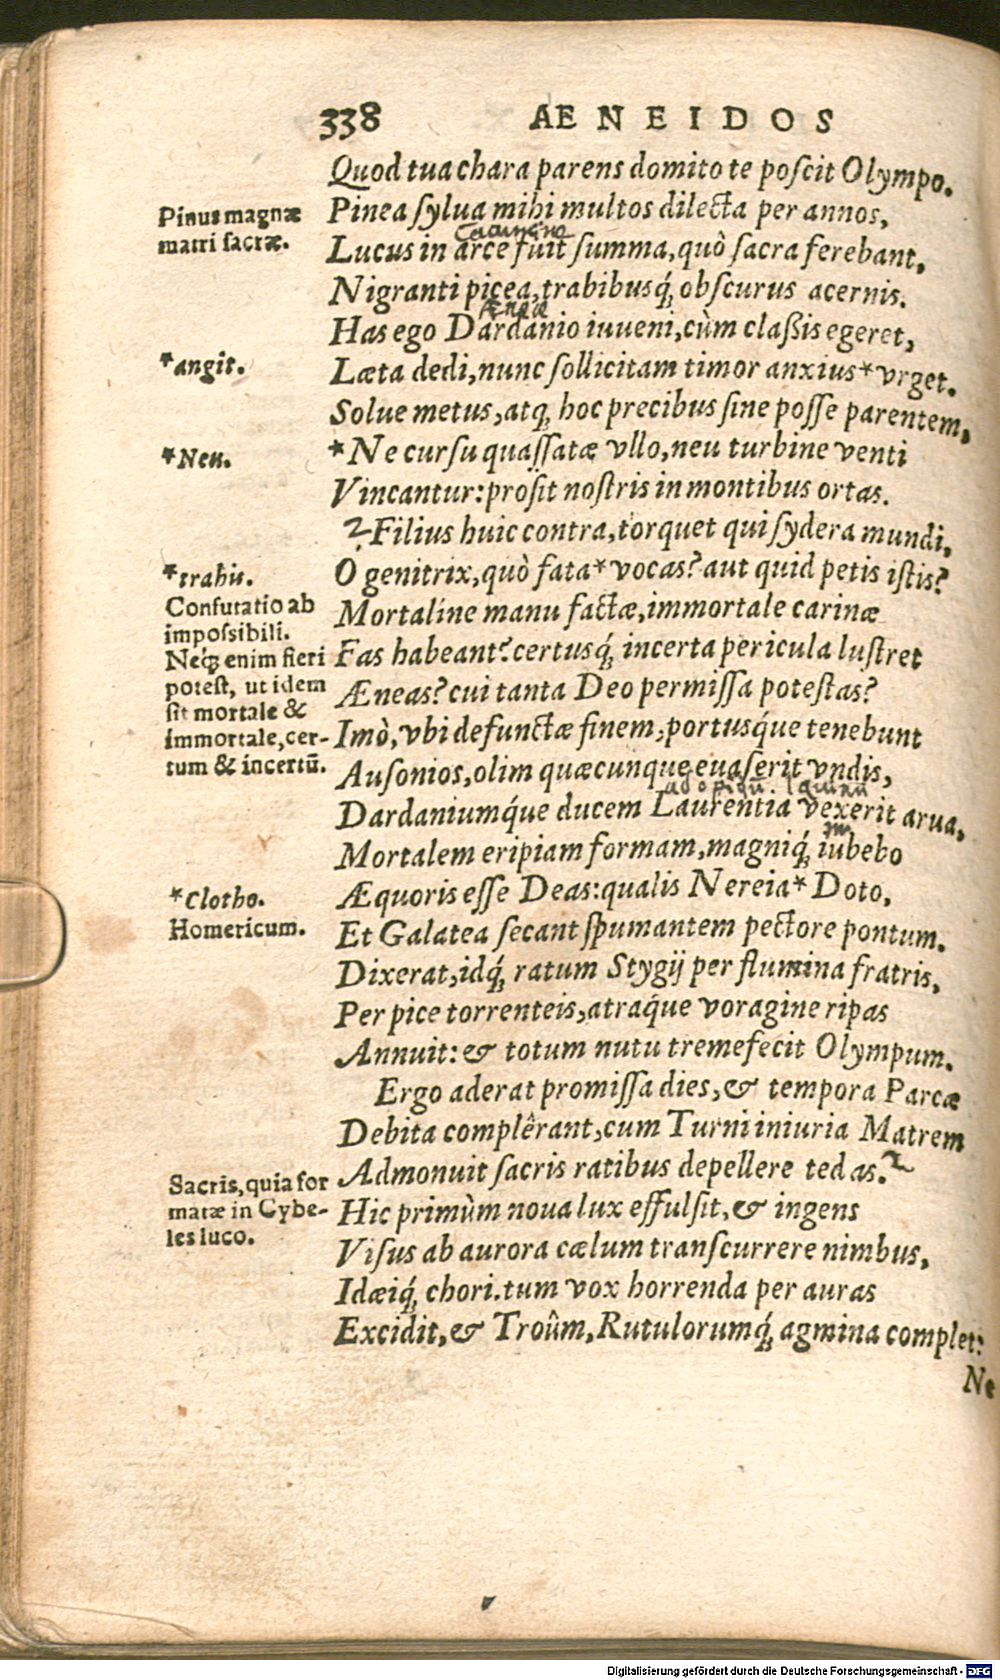 338 AENEIDOS
Quod tua chara parens domito te poscit Olympo.
Pinus magnæ
matri sacræ.
Pinea sylua mihi multos dilecta per annos,
Cacumine
Lucus in arce fuit summa, quò sacra ferebant,
Nigranti picea, trabibusq́; obscurus acernis.
Æneæ
Has ego Dardanio iuueni, cùm claßis egeret,
*angit.
Læta dedi, nunc sollicitam timor anxius* vrget.
Solue metus, atq; hoc precibus sine posse parentem,
*Neu.
*Ne cursu quassatæ vllo, neu turbine venti
Vincantur: prosit nostris in montibus ortas.
Filius huic contra, torquet qui sydera mundi,
*trahis.
O genitrix, quò fata* vocas? aut quid petis istis?
Confutatio ab
impossibili.
Neq́; enim fieri
potest, ut idem
sit mortale &
immortale, cer-
tum & incertū.
Mortalíne manu factæ, immortale carinæ
Fas habeant? certusq́; incerta pericula lustret
Æneas? cui tanta Deo permissa potestas?
Imò, vbi defunctæ finem, portusq́ue tenebunt
Ausonios, olim quæcunque euaserit vndis,
Dardaniumq́ue ducem Laurentia vexerit arua,
Mortalem eripiam formam, magniq́; iubebo
*Clotho.
Homericum.
Æquoris esse Deas: qualis Nereia* Doto,
Et Galatea secant spumantem pectore pontum.
Dixerat, idq́; ratum Stygij per flumina fratris,
Per pice torrenteis, atraq́ue voragine ripas
Annuit: & totum nutu tremefecit Olympum.
Ergo aderat promissa dies, & tempora Parcæ
Debita complêrant, cum Turni iniuria Matrem
Admonuit sacris ratibus depellere tedas.
Sacris, quia for
matæ in Cybe-
les luco.
Hic primùm noua lux effulsit, & ingens
Visus ab aurora cælum transcurrere nimbus,
Idæiq́; chori. tum vox horrenda per auras
Excidit, & Troûm, Rutulorumq́; agmina complet:
Ne
Digitalisierung gefördert durch die Deutsche Forschungsgemeinschaft - DFG